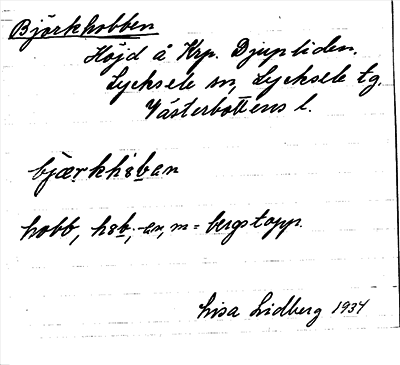 Björkhobben
Höjd å Krp. Djupliden.
Lycksele sn, Lycksele tg.
Västerbottens l.
bjærkhɜban
hobb, hɜb, -an, m = bergstopp.
Lisa Lidberg 1934